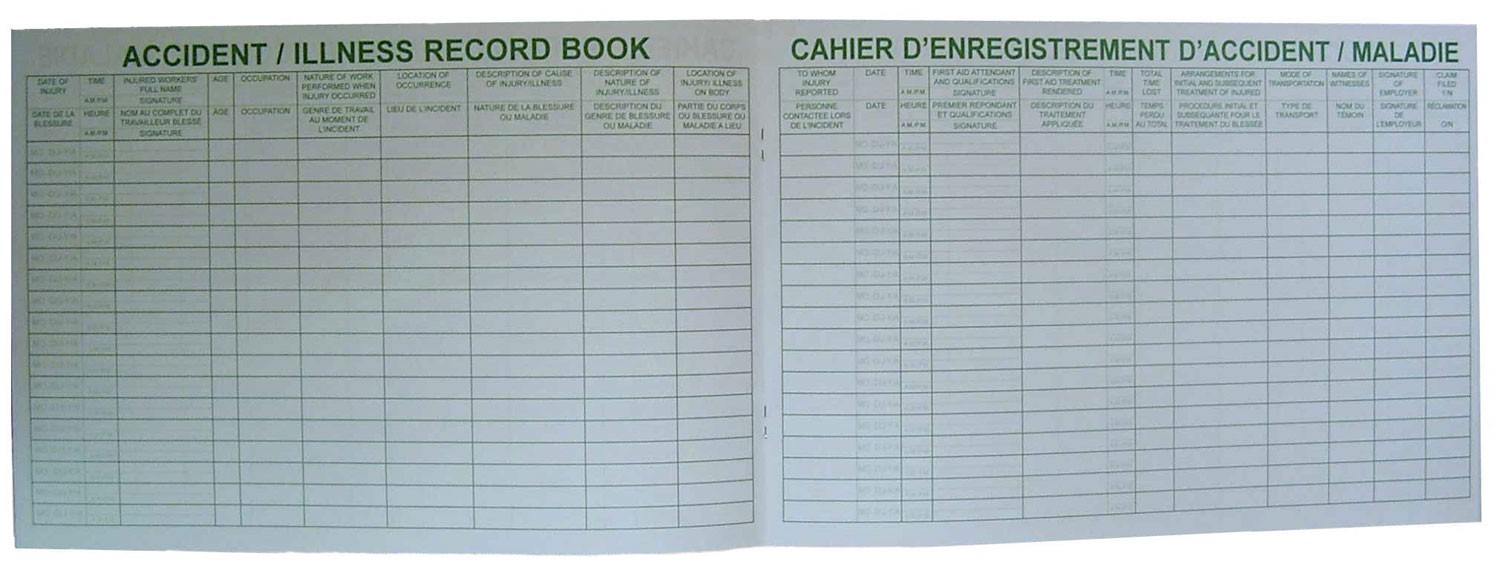 ACCIDENT / ILLNESS RECORD BOOK
DATE OF
INJURY
TIME
A.M./P.M.
INJURED WORKERS'
FULL NAME
SIGNATURE
AGE
OCCUPATION
NATURE OF WORK
PERFORMED WHEN
INJURY OCCURRED
LOCATION OF
OCCURRENCE
DESCRIPTION OF CAUSE
OF INJURY/ILLNESS
DESCRIPTION OF
NATURE OF
INJURY/ILLNESS
LOCATION OF
INJURY/ ILLNESS
ON BODY
DATE DE LA
BLESSURE
HEURE
A.M./P.M.
NOM AU COMPLET DU
TRAVAILLEUR BLESSÉ
SIGNATURE
AGE
OCCUPATION
GENRE DE TRAVAIL
AU MOMENT DE
L'INCIDENT
LIEU DE L'INCIDENT
NATURE DE LA BLESSURE
OU MALADIE
DESCRIPTION DU
GENRE DE BLESSURE
OU MALADIE
PARTIE DU CORPS
OU BLESSURE OU
MALADIE A LIEU
CAHIER D'ENREGISTREMENT D'ACCIDENT / MALADIE
TO WHOM
INJURY
REPORTED
DATE
TIME
A.M./P.M.
FIRST AID ATTENDANT
AND QUALIFICATIONS
SIGNATURE
DESCRIPTION OF
FIRST AID TREATMENT
RENDERED
TIME
A.M./P.M.
TOTAL
TIME
LOST
ARRANGEMENTS FOR
INITIAL AND SUBSEQUENT
TREATMENT OF INJURED
MODE OF
TRANSPORTATION
NAMES OF
WITNESSES
SIGNATURE
OF
EMPLOYER
CLAIM
FILED
Y/N
PERSONNE
CONTACTEE LORS
DE L'INCIDENT
DATE
HEURE
A.M./P.M.
PREMIER REPONDANT
ET QUALIFICATIONS
SIGNATURE
DESCRIPTION DU
TRAITEMENT
APPLIQUÉE
HEURE
A.M./P.M.
TEMPS
PERDU
AU TOTAL
PROCEDURE INITIAL ET
SUBSEQUANTE POUR LE
TRAITEMENT DU BLESSÉE
TYPE DE
TRANSPORT
NOM DU
TÉMOIN
SIGNATURE
DE
L'EMPLOYEUR
RÉCLAMATION
O/N